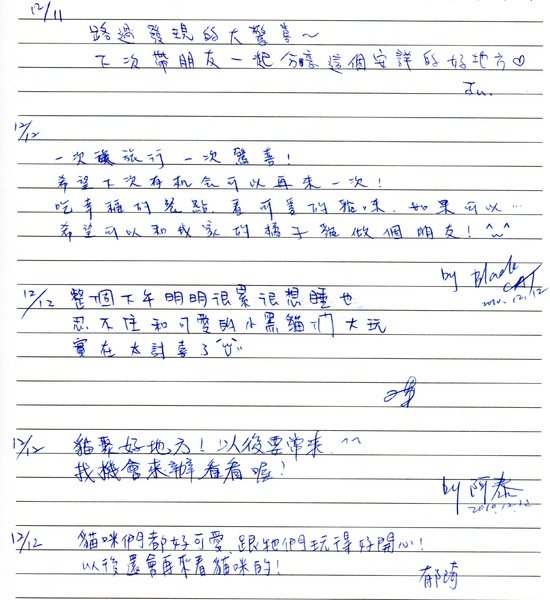 12/11
路過發現的大驚喜～
下次帶朋友一起分享這個安詳的好地方♡
Ju.
12/12
一次旅行 一次驚喜!
希望下次有机会可以再來一次!
吃幸福的 點, 看可愛的貓咪. 如果可以…
希望可以和我家的橘子貓做個朋友! ^_^
by Black CAT
2010.12.12
12/12 整個下午明明很累很想睡也
忍不住和可愛的小黑貓們大玩
實在太討喜了
12/12 貓聚好地方! 以後要常來 ^^
找機會來辦看看喔!
by 阿泰
2010.12.12
12/12 貓咪們都好可愛 跟牠們玩得好開心!
以後還會再來看貓咪的!
郁琦